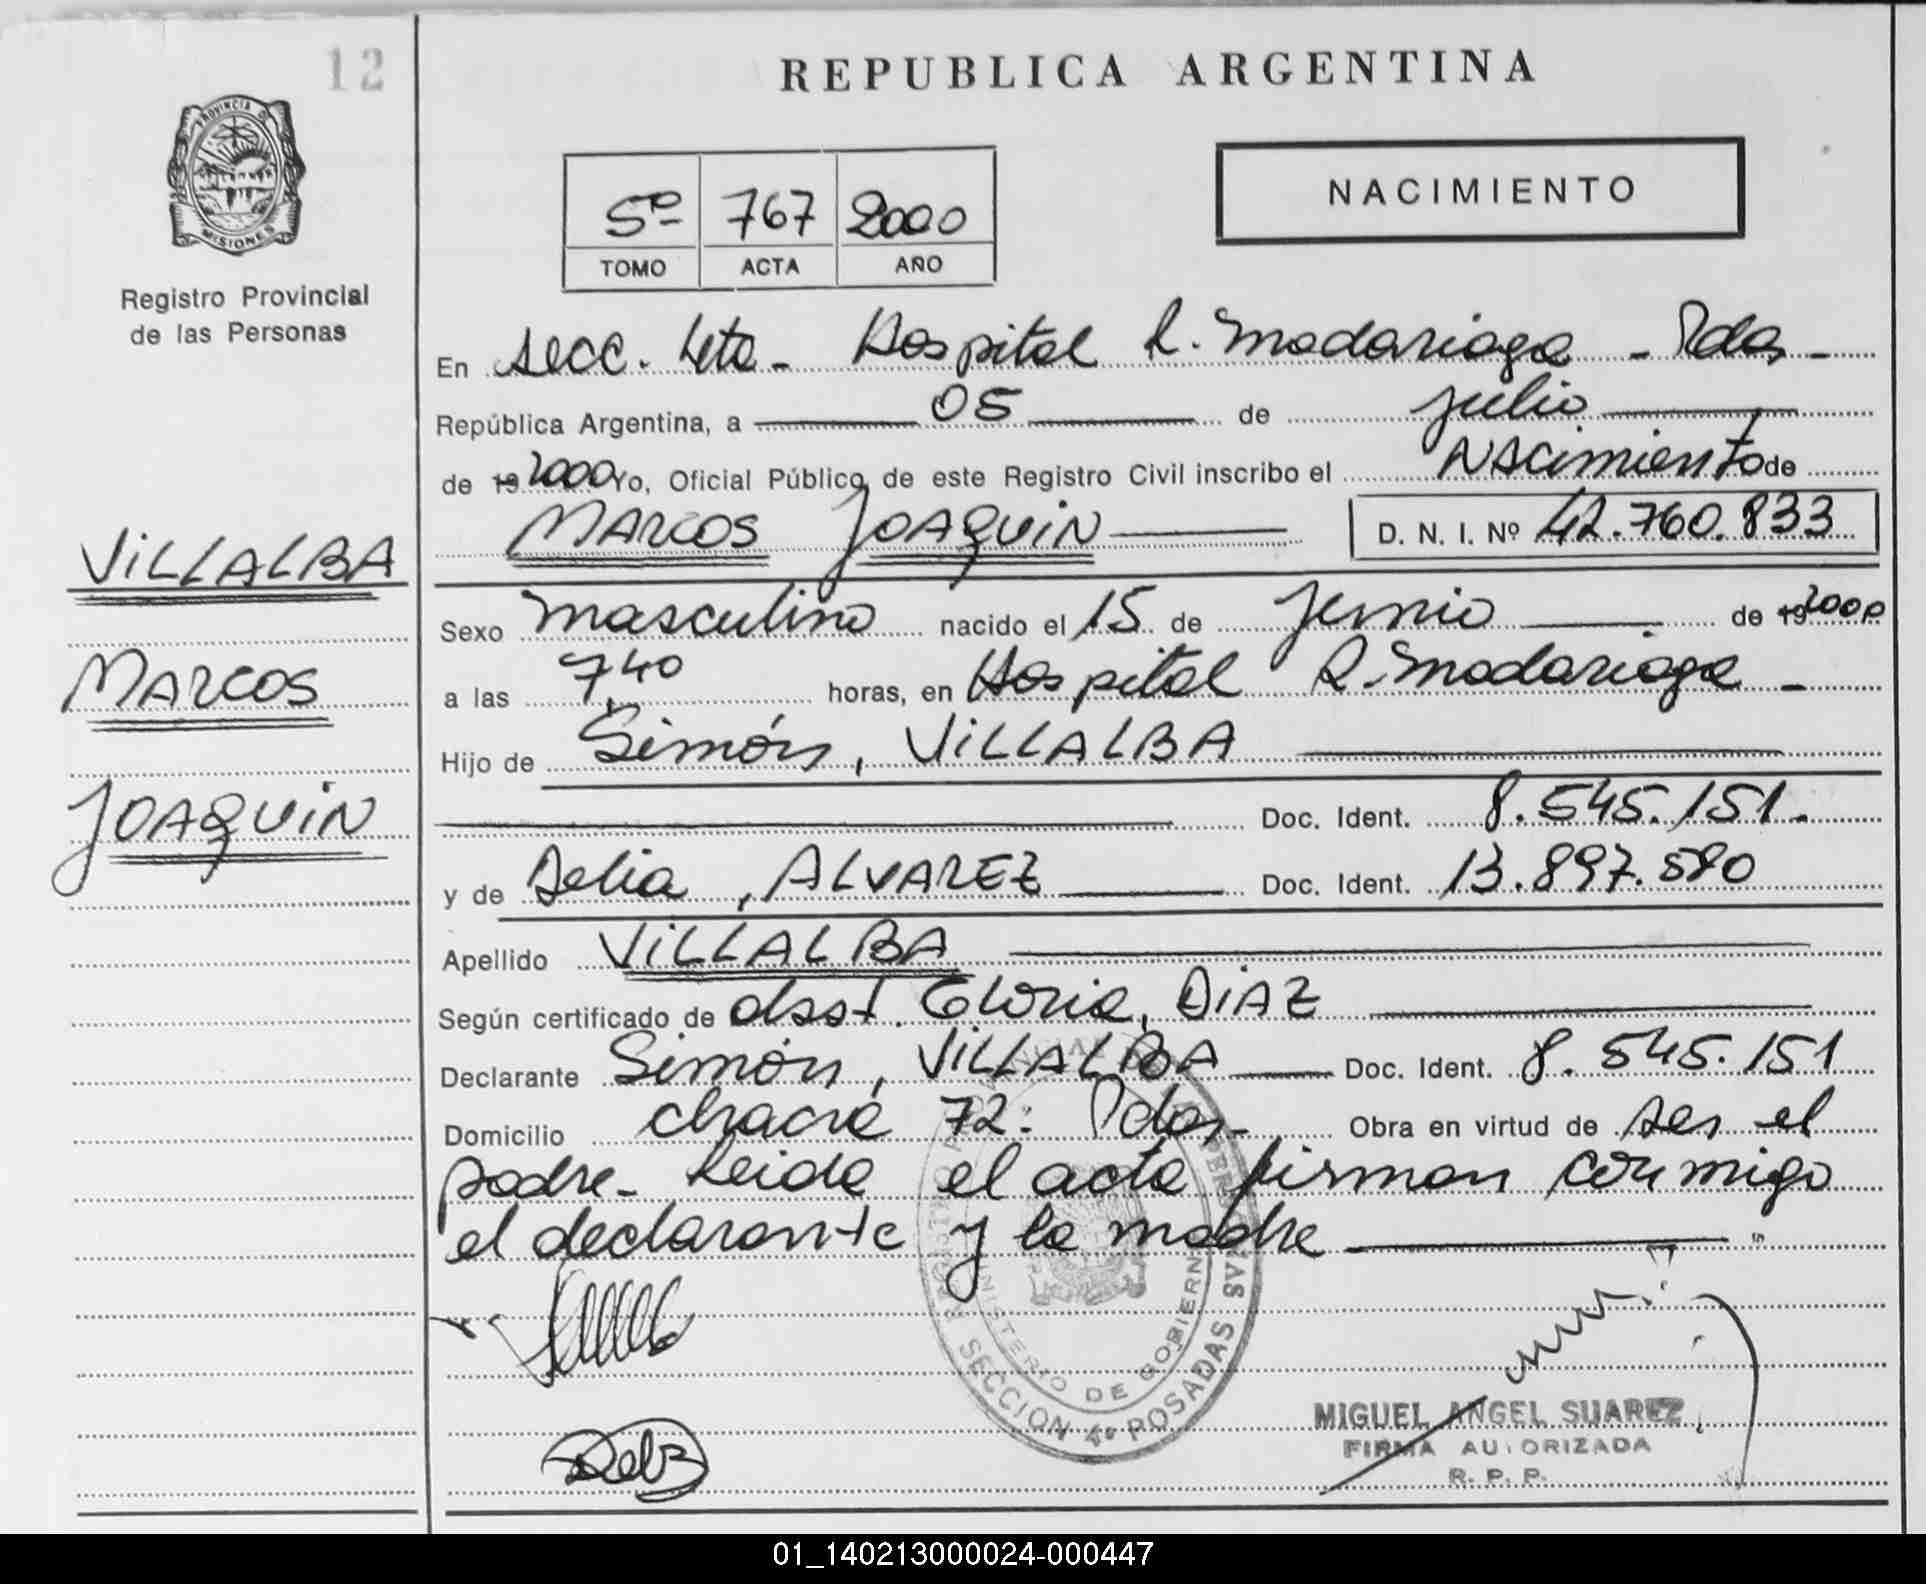 12
REPUBLICA ARGENTINA
PROVINCIA D
MISIONES
Registro Provincial
de las Personas
5º 767 2000
TOMO ACTA AÑO
NACIMIENTO
En secc. 4ta - Hospital R. Madariaga - Pdas -
República Argentina, a 05 de julio
de 19 2000 Yo, Oficial Público de este Registro Civil inscribo el Nacimiento de
MARCOS JOAQUIN D. N. I. Nº 42.760.833
VILLALBA
MARCOS
JOAQUIN
Sexo masculino nacido el 15 de Junio de 19 2000
a las 7,40 horas, en Hospital R. Madariaga -
Hijo de Simón, VILLALBA
Doc. Ident. 8.545.151.
y de Delia, ALVAREZ Doc. Ident. 13.897.580
Apellido VILLALBA
Según certificado de obst. Gloria, DIAZ
Declarante Simón, VILLALBA Doc. Ident. 8.545.151
Domicilio chacra 72: Pdas - Obra en virtud de ser el
padre - Leida el acta firman conmigo
el declarante y la madre
MINISTERIO DE GOBIERN
SECCION 4º POSADAS
MIGUEL ANGEL SUAREZ
FIRMA AUTORIZADA
R. P. P.
01_140213000024-000447